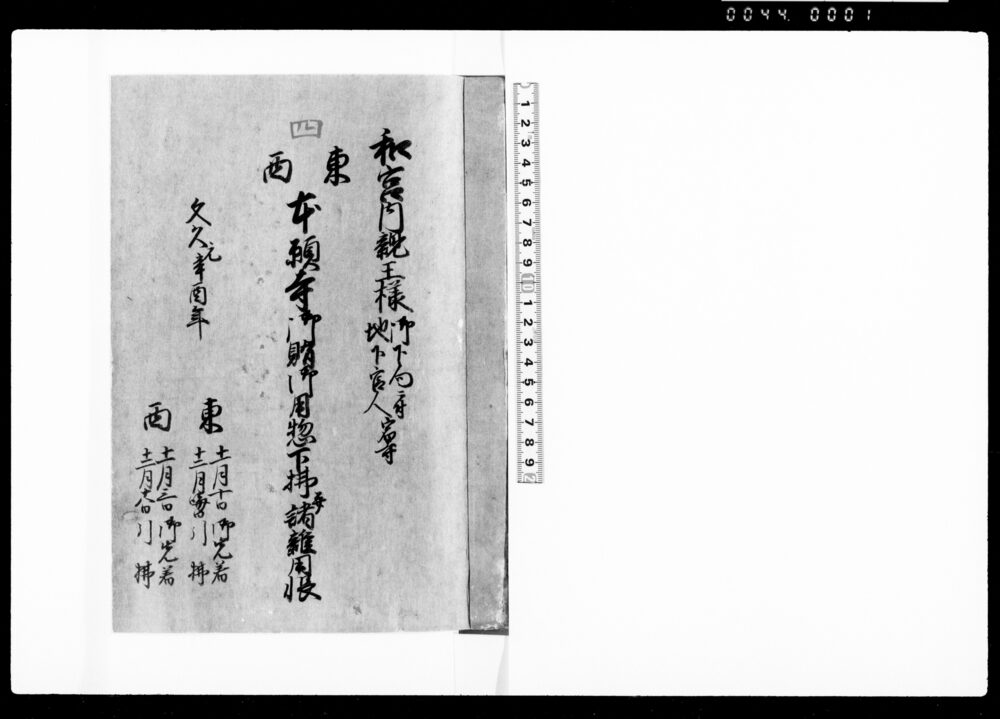 0044. 0001
和宮内親王様 御下向ニ付
地下官人宿寺
東
西
本願寺御賄御用惣下拂諸雑用帳
四
文久元辛酉年
東
十一月十日御先着
十二月
引拂
西
十一月三日御先着
十二月
引拂
1 2 3 4 5 6 7 8 9 10 1 2 3 4 5 6 7 8 9 2